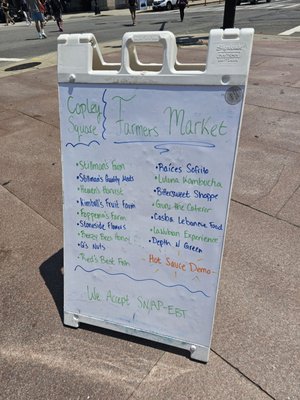 Copley
Square
Farmers Market
• Stillman's Farm
• Stillman's Quality Meats
• Hamer's Harvest
• Kimball's Fruit Farm
• Freeman's Farm
• Stoneside Flowers
• Boxer Bees Honey
• Q's Nuts
• Fred's Best Fan
• Raíces Sofrito
• Lituna Kombucha
• Bittersweet Shoppe
• Guru the Caterer
• Cosba Lebanese Food
• LaNaban Experience
• Depth N Green
Hot Sauce Demo
We Accept SNAP-EBT